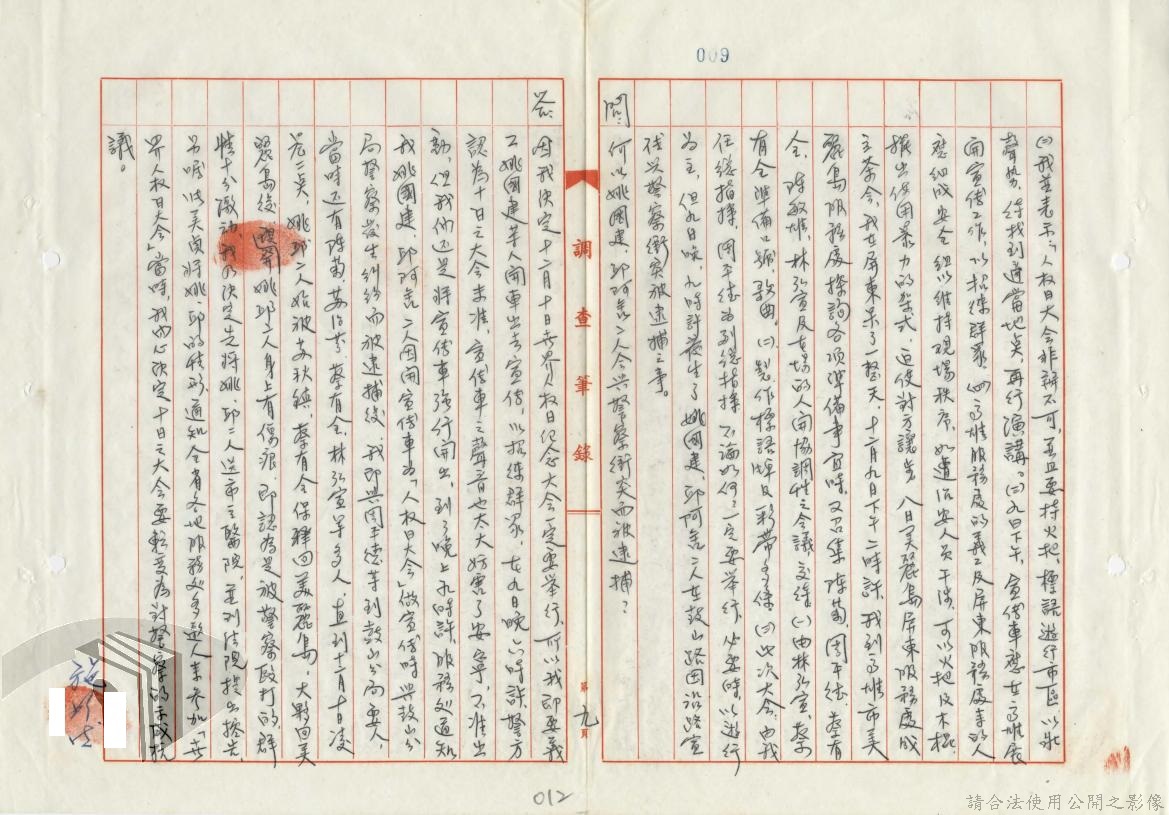 009
㈡我並表示「人權日大會非辦不可，並且要持火把、標語遊行市區以壯
聲勢，待找到適當地點，再行演講。㈢九日下午，宣傳車應在高雄展
開宣傳工作，以招徠群眾。㈣高雄服務處的義工及屏東服務處來的人
應組成安全組以維持現場秩序，如遭治安人員干涉，可以火把及木棍
擺出使用暴力的架式，迫使對方讓步。八日美麗島屏東服務處成
立茶會，我在屏東呆了一整天，十二月九日下午二時許，我到高雄市美
麗島服務處探詢各項準備事宜時，又召集陳菊、周平德、蔡有
全、陳敏雄、林弘宣及在場的人開協調性之會議，交待㈠由林弘宣、蔡
有全準備口號、歌曲。㈡製作標語牌及彩帶多條㈢此次大會，由我
任總指揮，周平德為副總指揮，不論如何，一定要舉行，必要時以遊行
為主，但九日晚，九時許發生了姚國建、邱阿舍二人在鼓山路因沿路宣
傳與警察衝突被逮捕之事。
問：何以姚國建、邱阿舍二人會與警察衝突而被逮捕？
調查筆錄
第九頁
答：因我決定十二月十日世界人權日紀念大會一定要舉行，所以我即要義
工姚國建等人開車出去宣傳，以招徠群眾，在九日晚六時許，警方
認為十日之大會未准，宣傳車之聲音也太大妨害了安寧，不准出
動，但我們還是將宣傳車強行開出，到了晚上九時許，服務處通知
我姚國建、邱阿舍二人因開宣傳車為「人權日大會」做宣傳時與鼓山分
局警察發生糾紛而被逮捕後，我即與周平德等到鼓山分局要人，
當時還有陳菊、蘇治芬、蔡有全、林弘宣等多人，直到十二月十日凌
晨二點，姚邱二人始被蘇秋鎮、蔡有全保釋回美麗島，大夥回美
麗島後，姚邱二人身上有傷痕，即認為是被警察毆打的，群
情十分激動，我乃決定先將姚、邱二人送市立醫院，並到法院提出控告，
另囑呂美貞將姚、邱的情形，通知全省各地服務處多趕人來參加「世
界人權日大會」當時，我內心決定十日之大會要轉變為對警察的示威抗
議。
012
請合法使用公開之影像